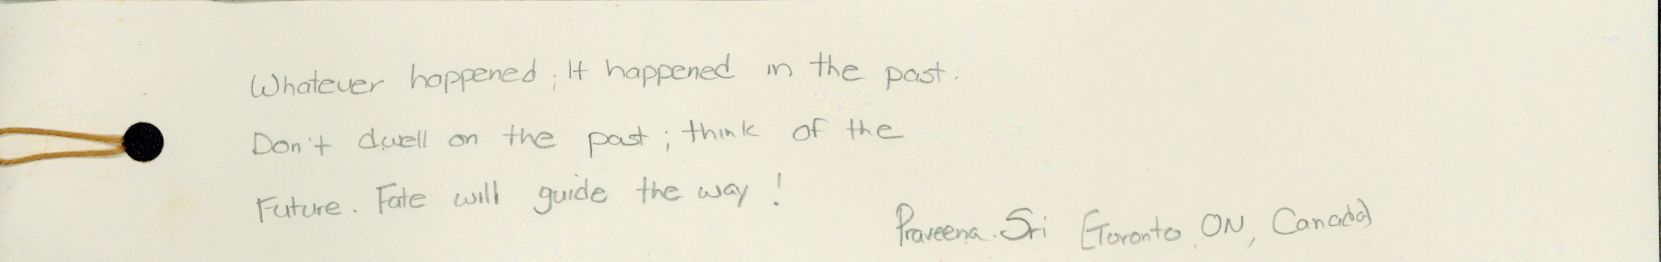 Whatever happened; It happened in the past.
Don't dwell on the past; think of the
Future. Fate will guide the way!
Praveena. Sri [Toronto, ON, Canada]